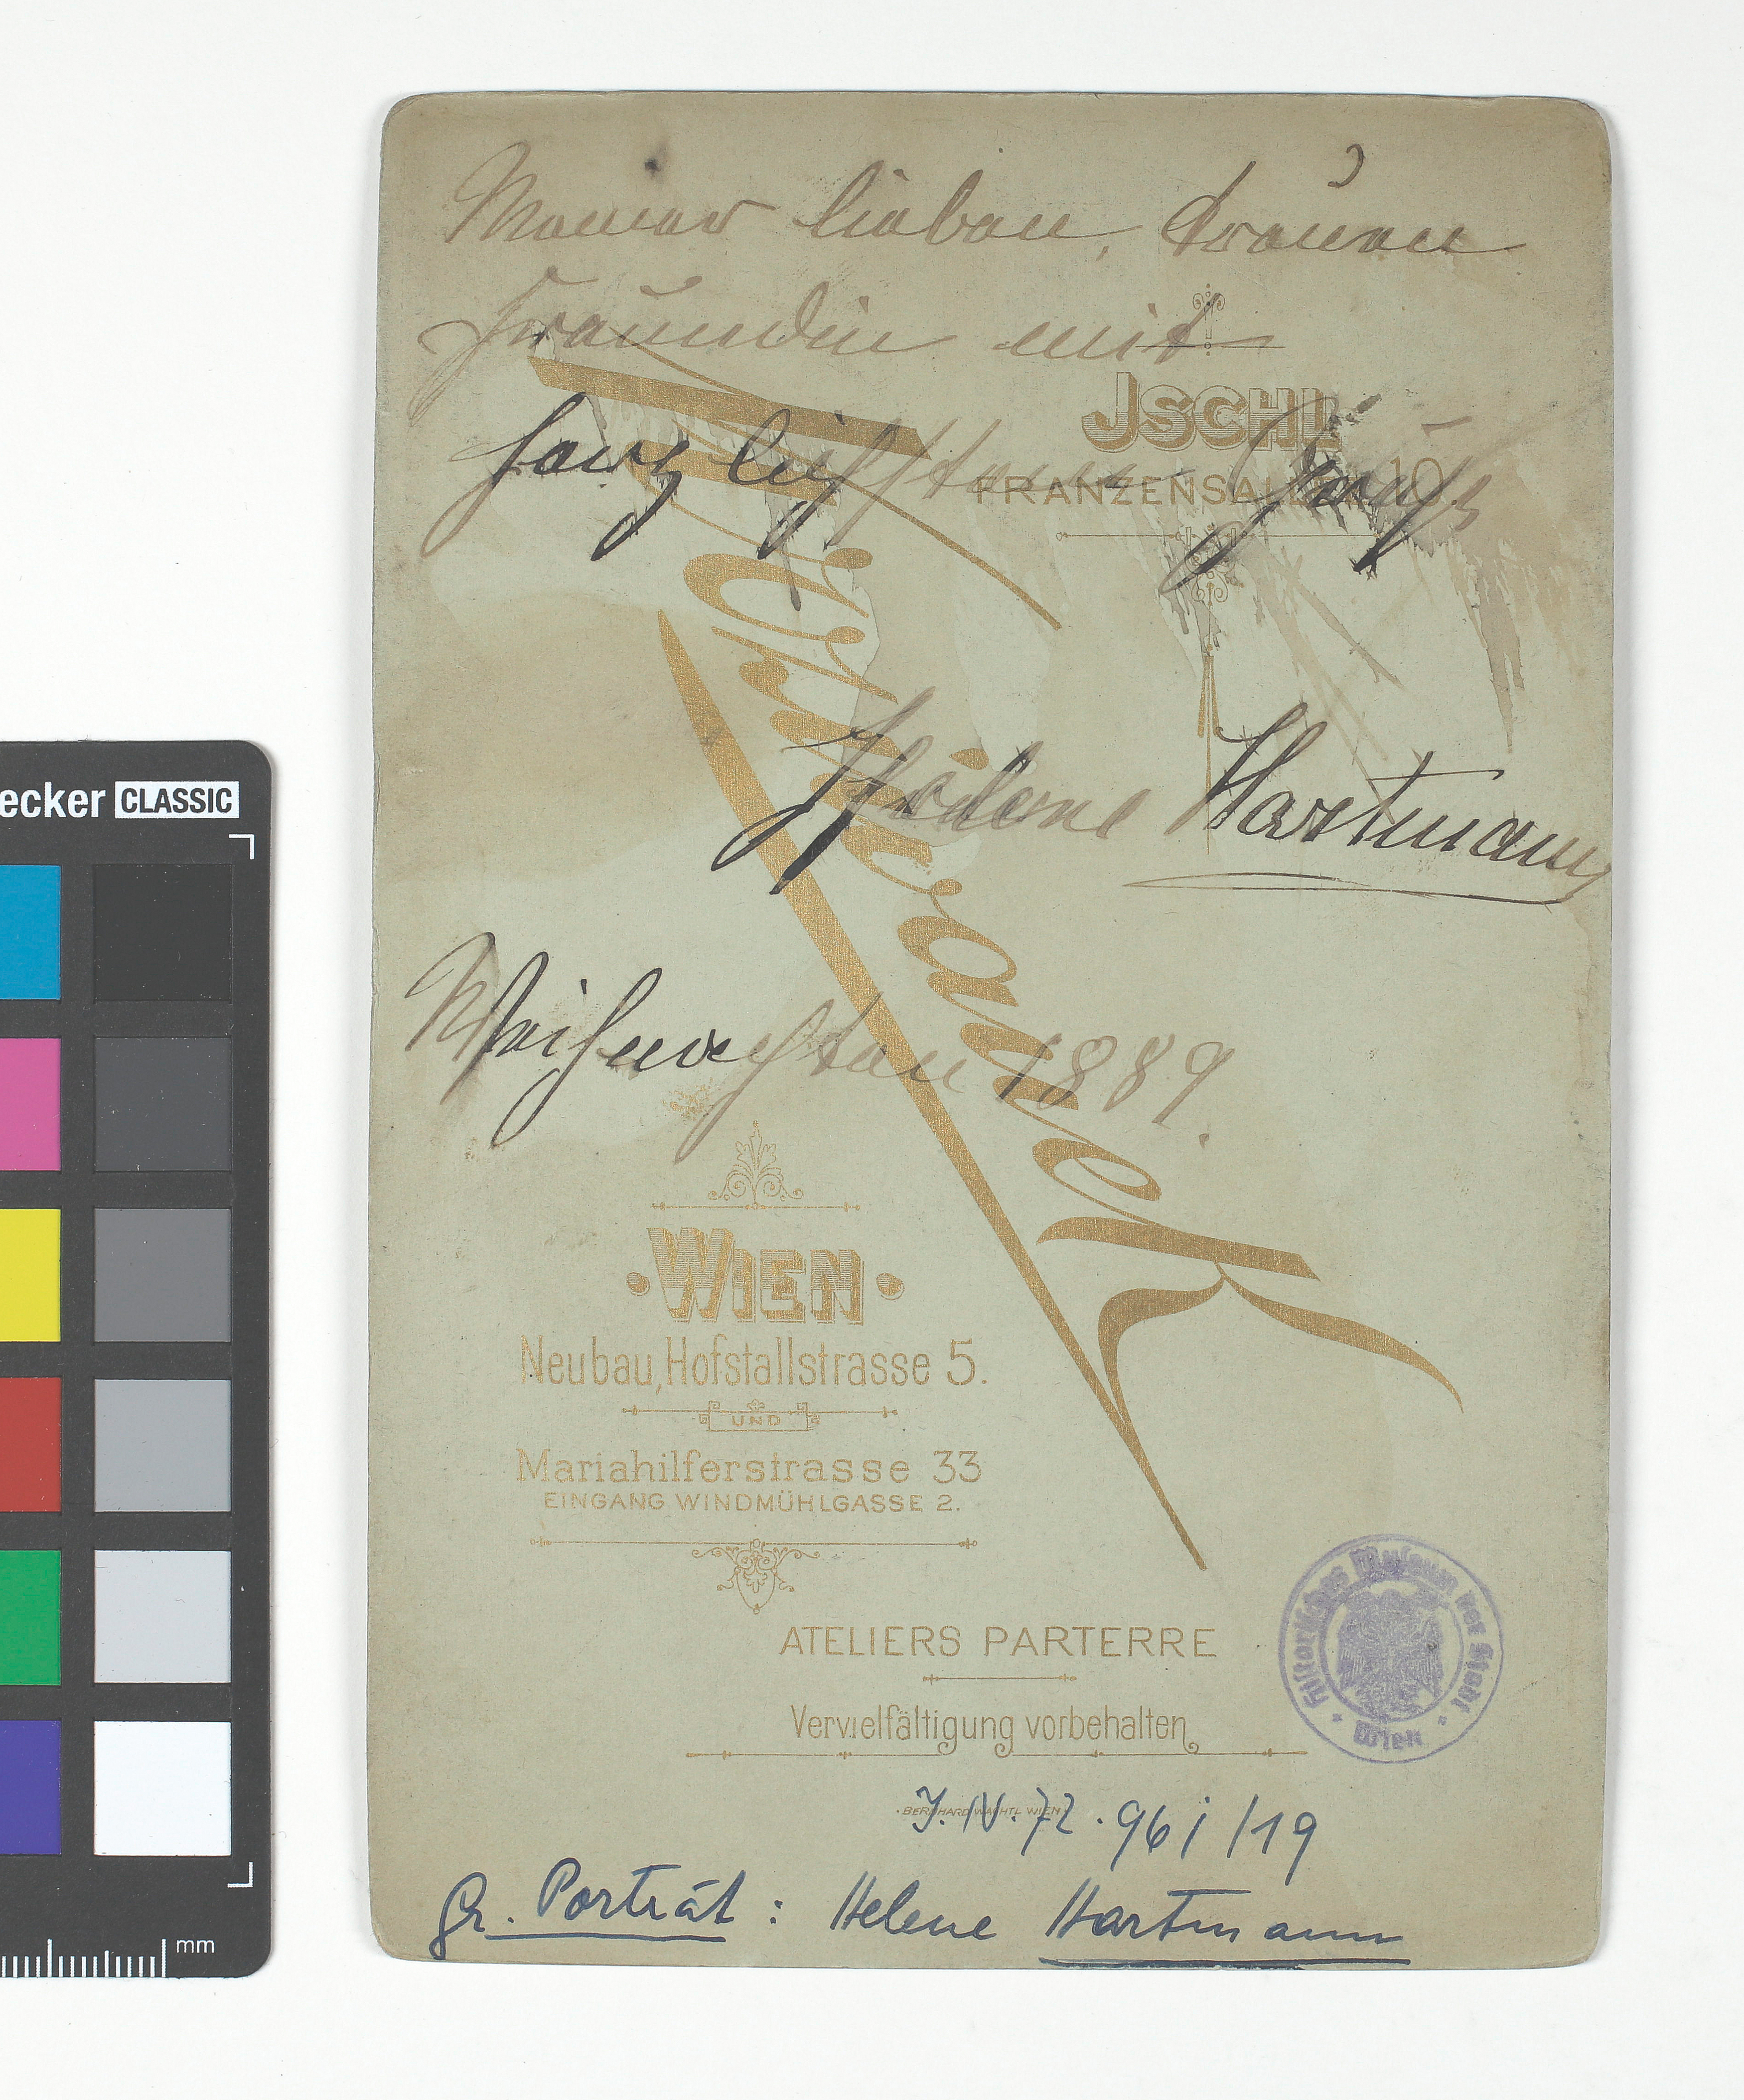 Meiner lieben, treuen
Freundin mit
herzlichstem Gruß
JSCHL
FRANZENSALLEE 10
Helene Hartmann
Weihnachten 1889.
Krziwanek
WIEN
Neubau, Hofstallstrasse 5.
UND
Mariahilferstrasse 33
EINGANG WINDMÜHLGASSE 2.
ATELIERS PARTERRE
Vervielfältigung vorbehalten
Historisches Museum der Stadt Wien
BERNHARD WACHTL WIEN
J.N. 72.961/19
gr. Porträt: Helene Hartmann
ecker CLASSIC
mm